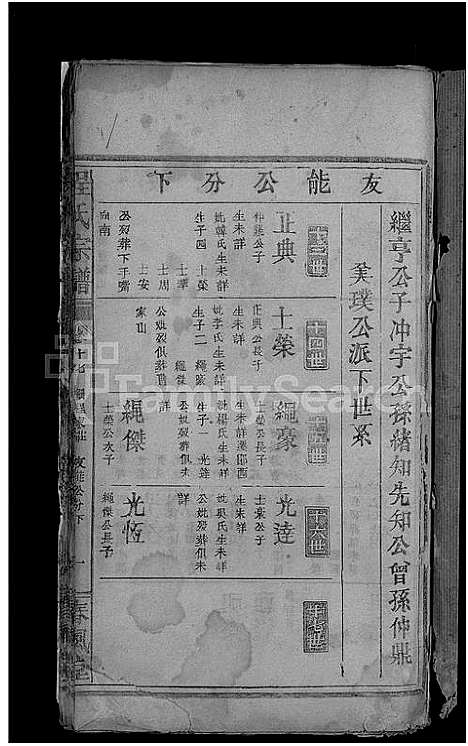 友能公分下
繼亨公子冲宇公孫緒知先知公曾孫仲鼎
美璞公派下世系
十三世
正典
仲鼎公子
生未詳
妣韓氏生未詳
生子四 士榮
士華
士周
士安
公歿葬下手嘴
向南
十四世
士榮
正典公長子
生未詳
妣李氏生未詳
生子二 繩豪
繩傑
公妣歿葬俱未
詳
繩豪
士榮公長子
生未詳
妣楊氏生未詳
生子一 光達
公妣歿葬俱未
詳
繩傑
士榮公次子
十六世
光達
生未詳
妣吳氏生未詳
公妣歿葬俱未
詳
光恆
繩傑公長子
十七世
程氏宗譜
友能公分下
FamilySearch